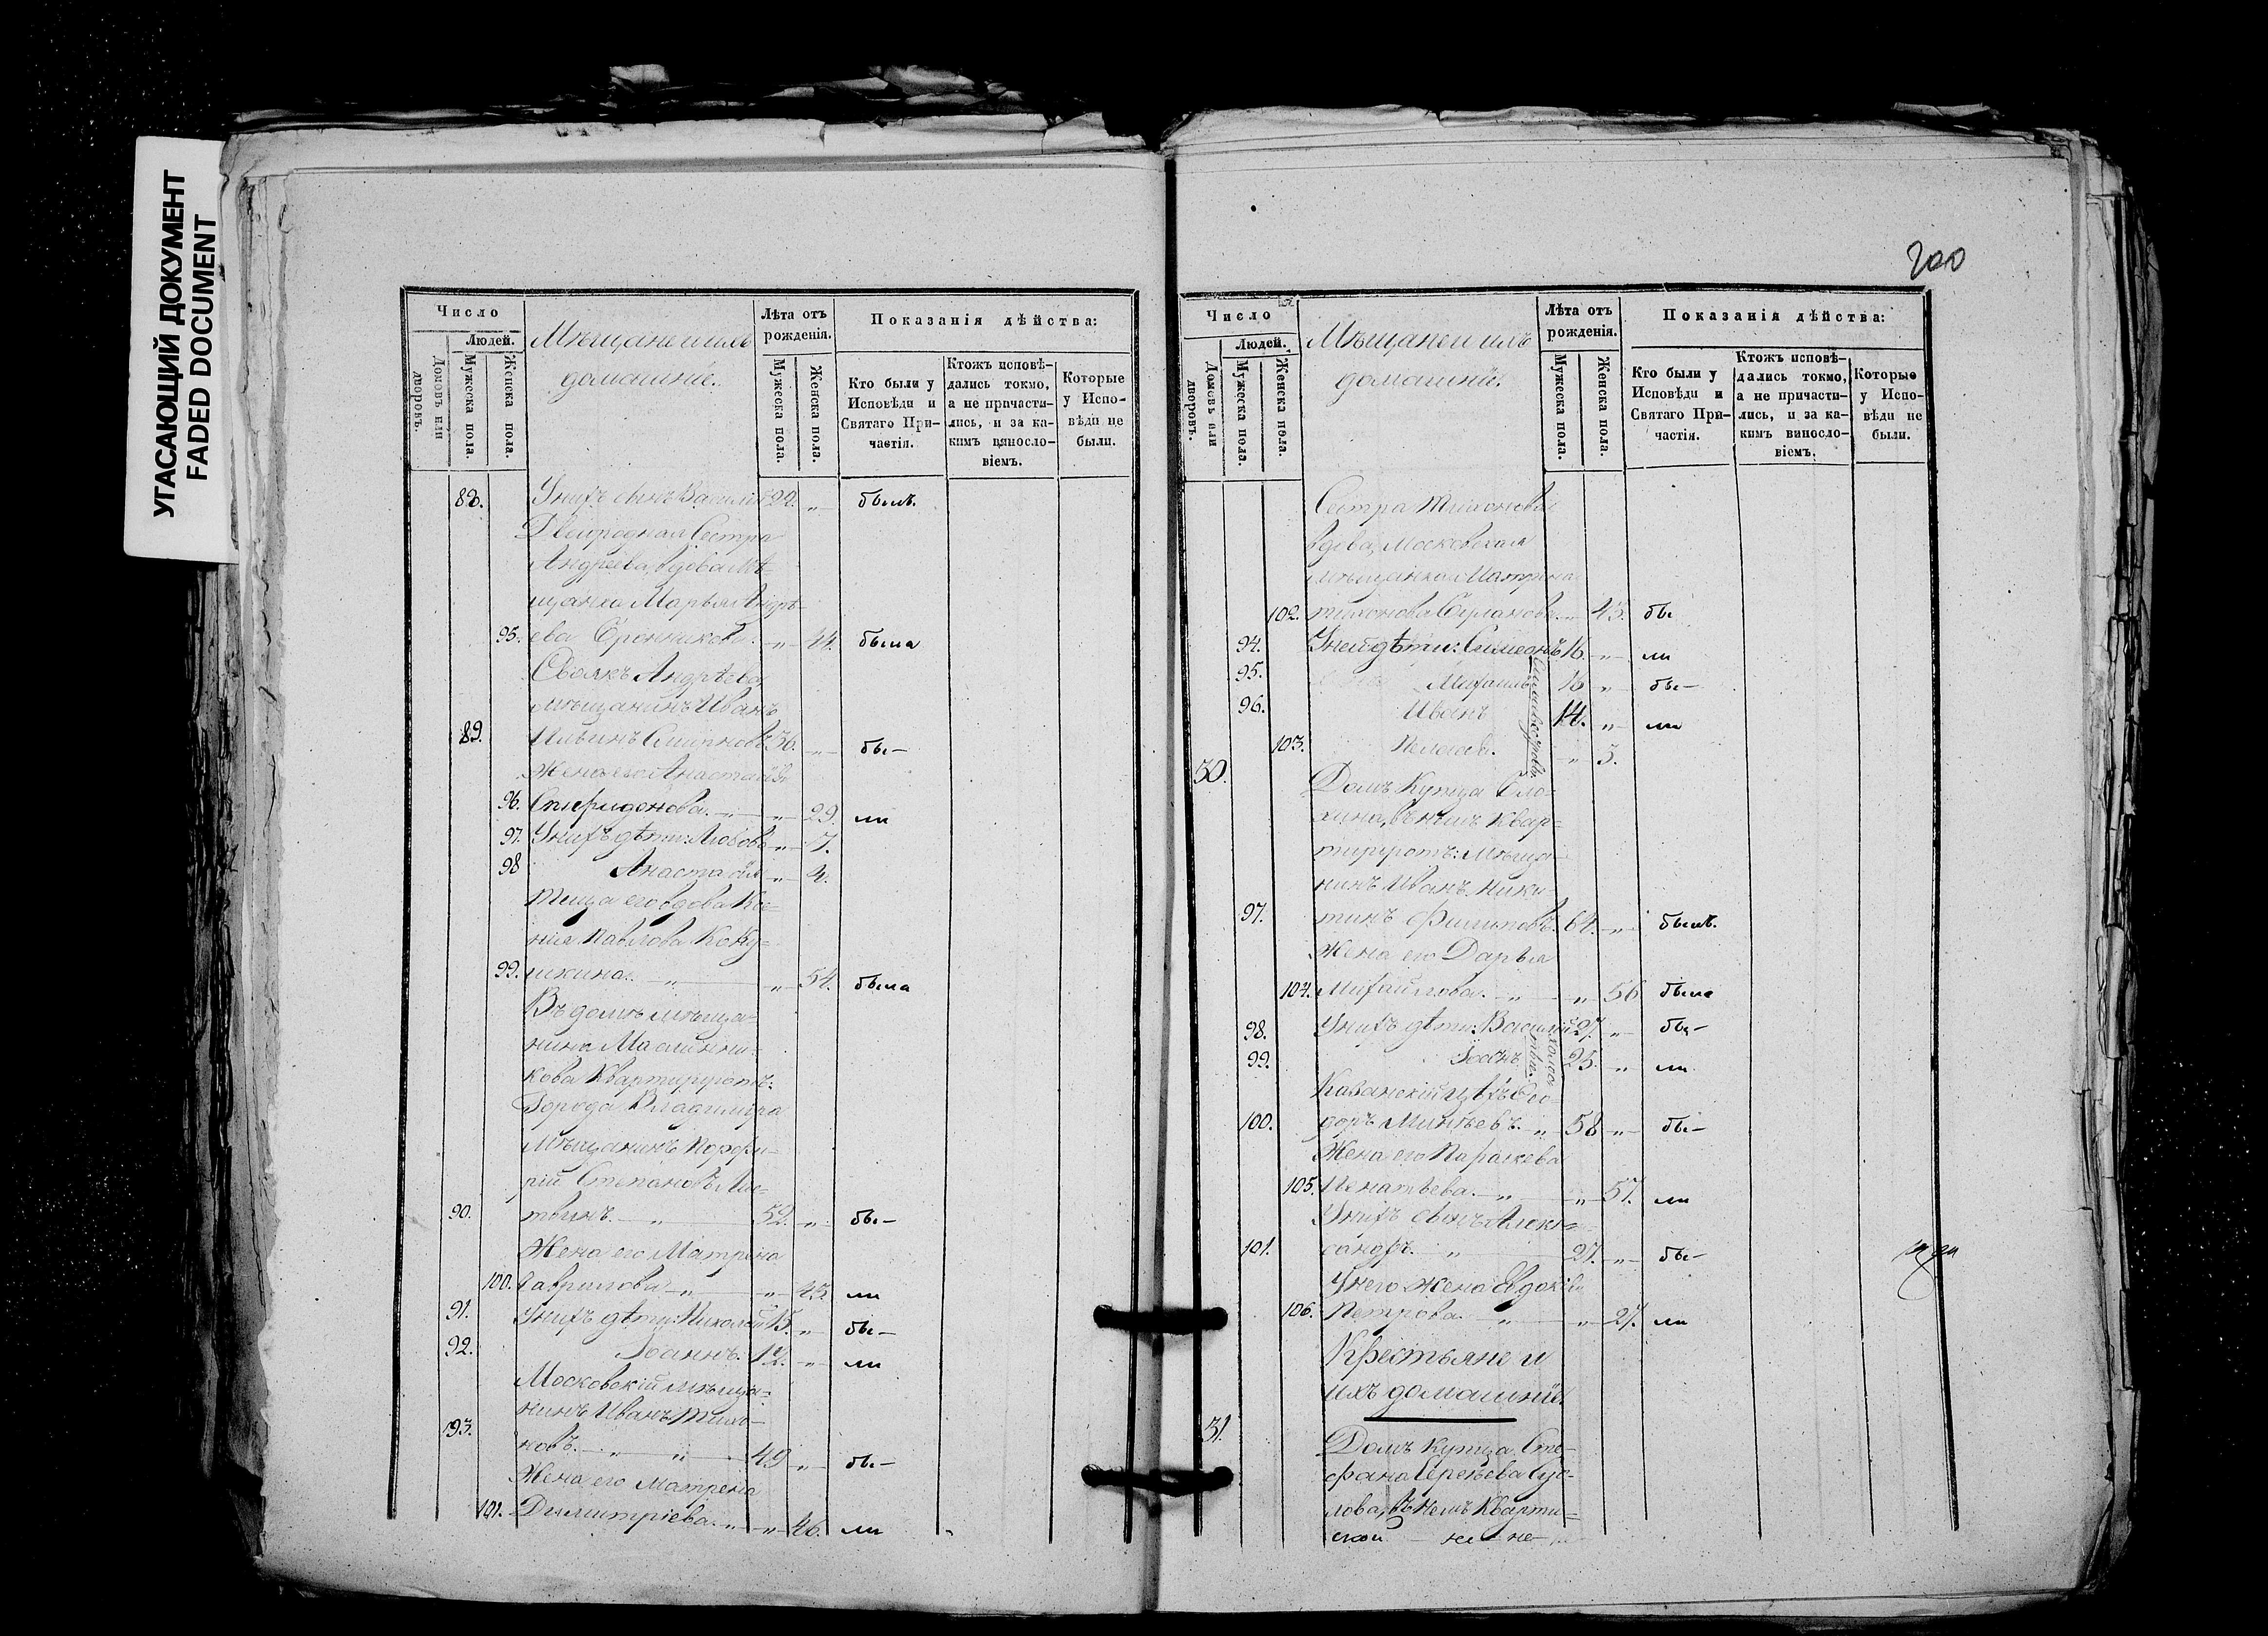 УГАСАЮЩИЙ ДОКУМЕНТ
FADED DOCUMENT
Число
Людей.
Домовъ или дворовъ.
Мужеска пола.
Женска пола.
Мѣщане и ихъ
домашніе.
Лѣта отъ рожденія.
Мужеска пола.
Женска пола.
Показанія дѣйства:
Кто были у Исповѣди и Святаго Причастія.
Ктожъ исповѣдались токмо, а не причастились, и за какимъ винословіемъ.
Которые у Исповѣди не были.
88. У нихъ сынъ Василій 22. „ былъ.
Двоюродная Сестра
Андреева, вдова мѣ-
щанка Марья Андрѣ-
95. ева „ 44. была
Своякъ Андрѣева,
мѣщанинъ Иванъ
89. Ильинъ 36. „ бы-
Жена его Анастасія
96. Спиридонова. „ „ 29. ли
97. У нихъ дѣти: Любовь „ 7.
98 Анастасія „ 4.
Теща его вдова Ксе-
нія Павлова Коку-
99. шкина. „ „ 54. была
Въ домѣ мѣща-
нина Маслянни-
кова Квартируютъ:
Города Владиміра
Мѣщанинъ Порфи-
рій Степановъ Ли-
90. твинъ. „ 52. „ бы-
Жена его Матрена
100. Гаврилова „ „ 43. ли
91. У нихъ дѣти: Николай 15. „ бы-
92. Іоаннъ. 12. „ ли
Московскій мѣща-
нинъ Иванъ Тихо-
93. новъ. „ „ 49 „ бы-
Жена его Матрена
101. Димитріева. „ „ 46. ли
200
Число
Людей.
Домовъ или дворовъ.
Мужеска пола.
Женска пола.
Мѣщане и ихъ
домашніе.
Лѣта отъ рожденія.
Мужеска пола.
Женска пола.
Показанія дѣйства:
Кто были у Исповѣди и Святаго Причастія.
Ктожъ исповѣдались токмо, а не причастились, и за какимъ винословіемъ.
Которые у Исповѣди не были.
Сестра Тихонова
вдова, Московская
мѣщанка Матрена
102. Тихонова „ 45. бы
94. У ней дѣти: Симеонъ 16. „ ли
95. Михаилъ 16 „ бы-
96. Иванъ 14. „ ли
103. Пелагея. „ 5.
30. Домъ Купца Бло-
хина, въ немъ Квар-
тируютъ: Мѣща-
нинъ Иванъ Ники-
97. тинъ Филиповъ. 64. „ былъ.
Жена его Дарья
104. Михайлова. „ „ 56 была
98. У нихъ дѣти: Василій 27. „ бы-
99. Іоанъ 25. „ ли
Казанскій цѣхъ Ѳео-
100. доръ Минѣевъ. „ 58 „ бы-
Жена его Параскева
105. Игнатьева. „ „ 57. ли
У нихъ сынъ Алек-
101. сандръ. „ 27. „ бы-
У него жена Евдокія
106. Петрова. „ „ 27. ли
Крестьяне и
ихъ домашніе.
31. Домъ Купца Сте-
фана Сергѣева Су-
лова, въ немъ Кварти-